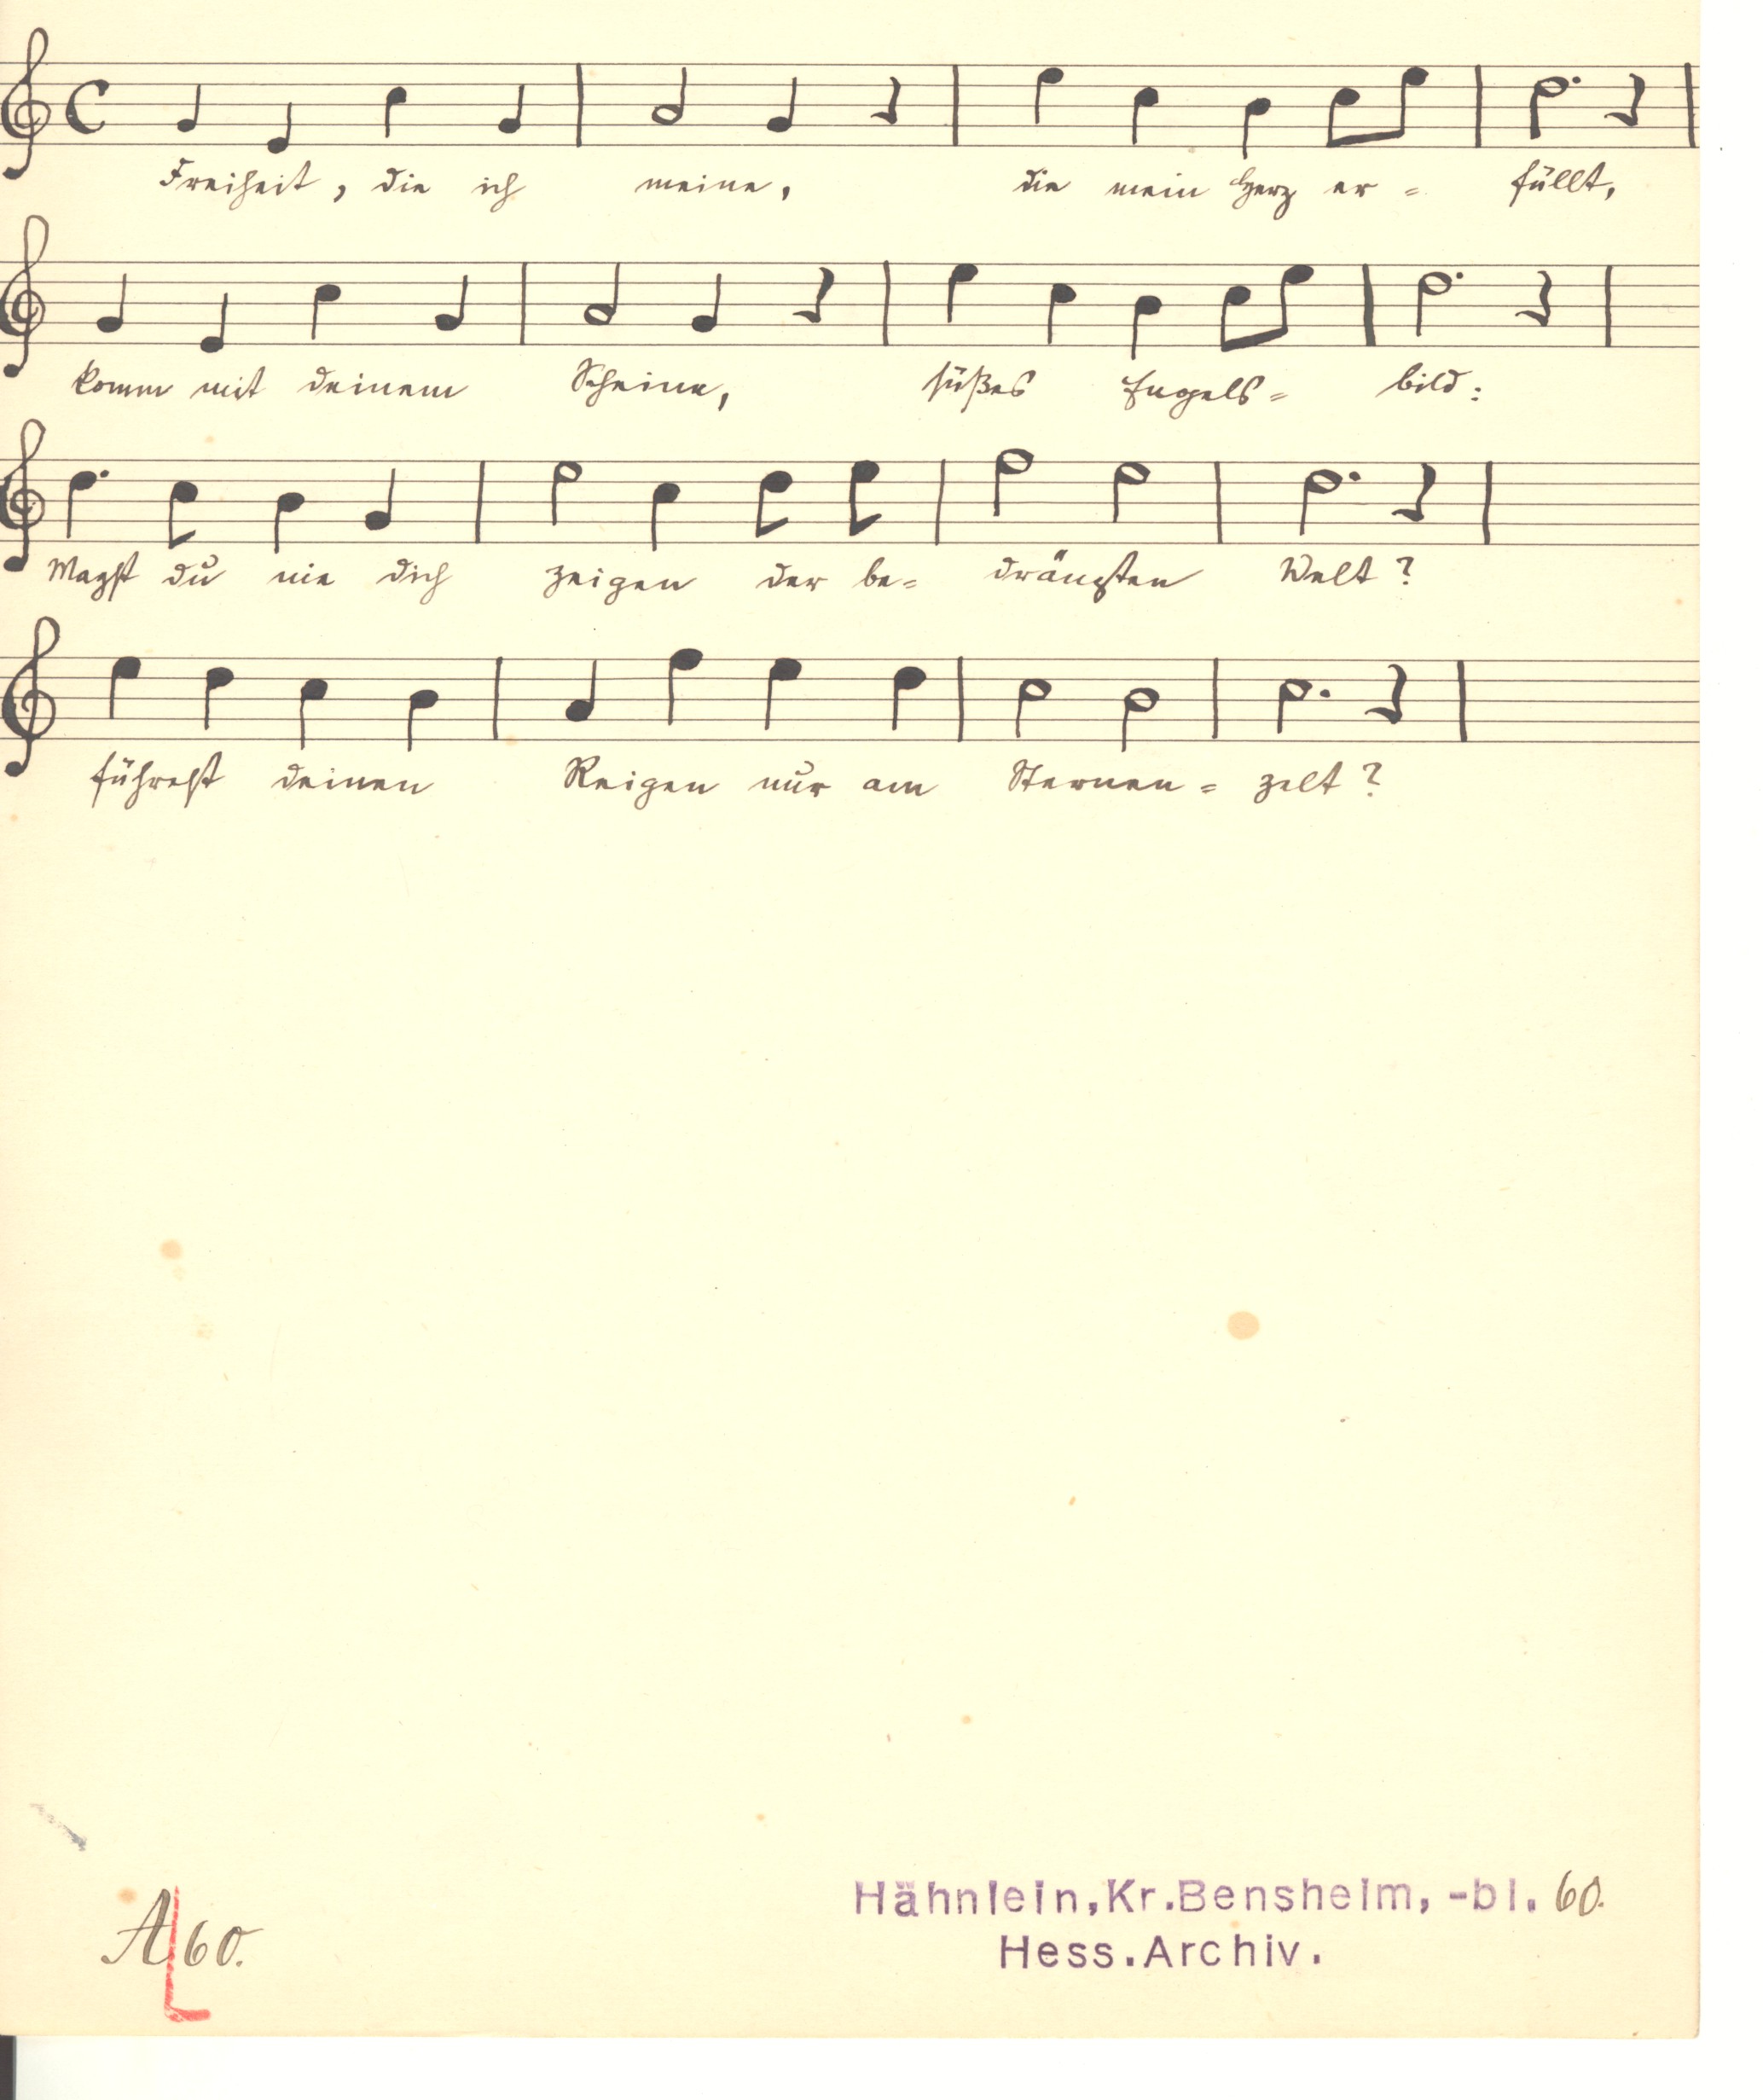 Freiheit, die ich meine, die mein Herz er= füllt,
komm mit deinem Scheine, süßes Engels= bild:
Magst du nie dich zeigen der be= drängten Welt?
führest deinen Reigen nur am Sternen= zelt?
A 60.
Hähnlein,Kr.Bensheim,-bl. 60.
Hess.Archiv.